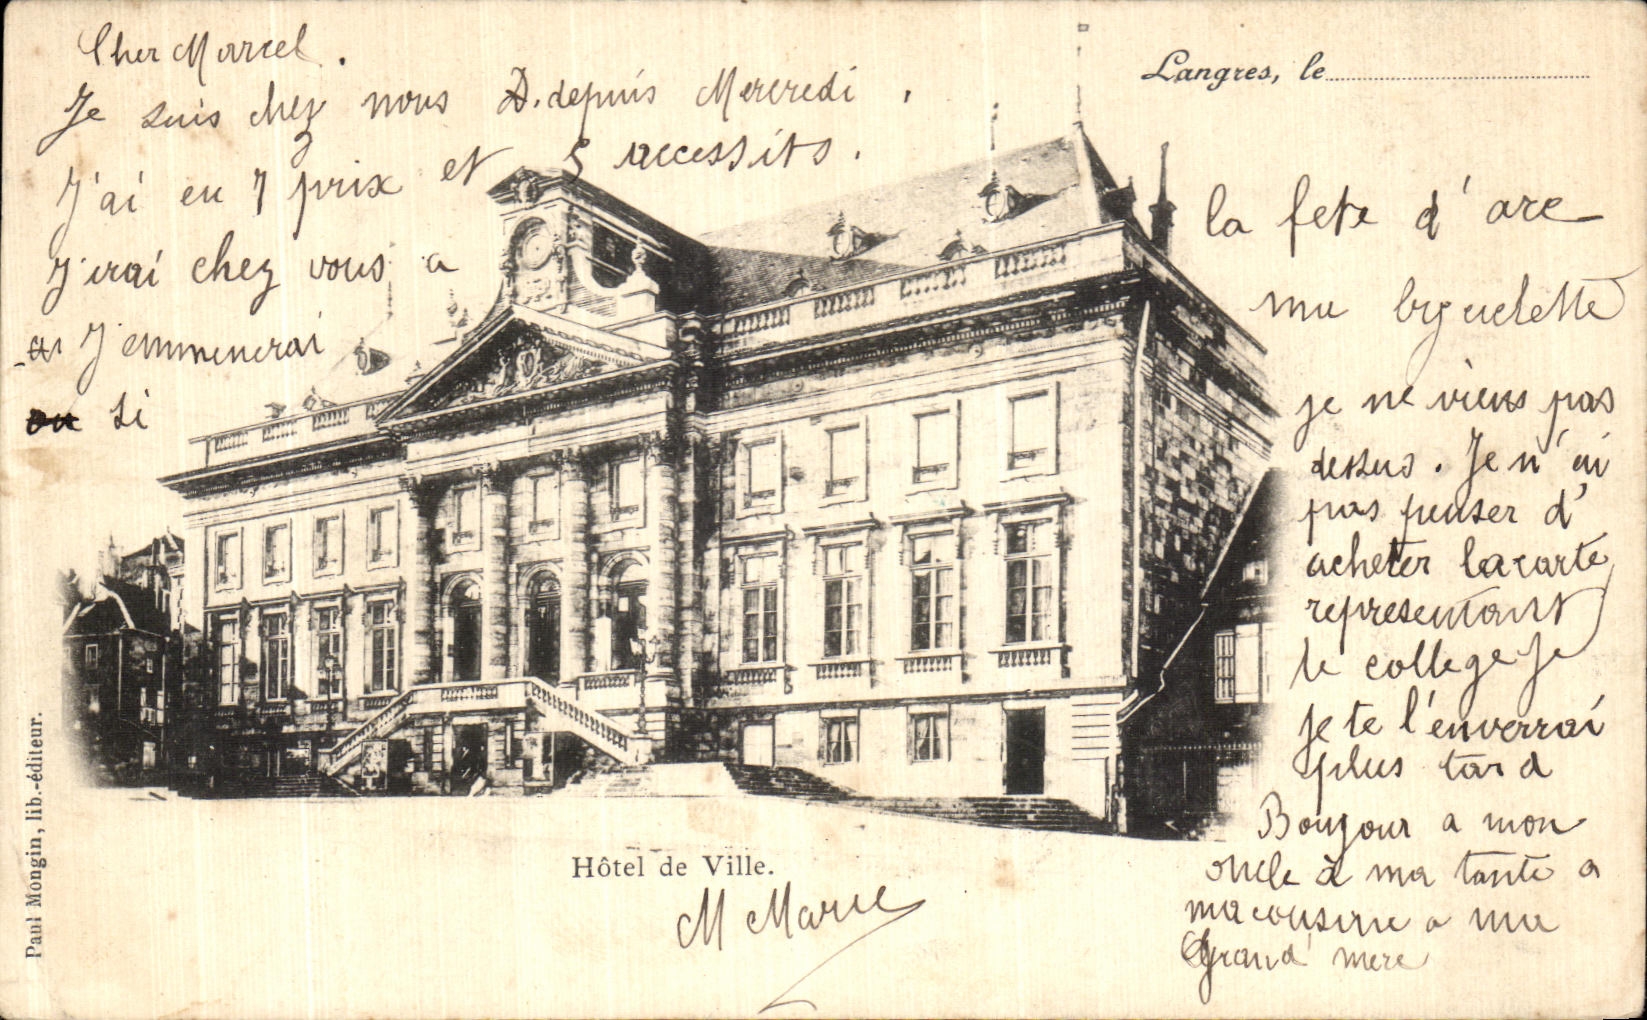 Cher Marcel.
Je suis chez nous depuis Mercredi.
J'ai eu 7 prix et 5 accessits.
J'irai chez vous a
J'emmenerai
si
Langres, le
la fete d'arc
ma biguclette
je ne viens pas
dessus. Je n'ai
pas penser d'
acheter la carte
representant
le college Je
Je te l'enverrai
plus tard
Bonjour a mon
oncle à ma tante a
ma cousine a ma
Grand'mere
Hôtel de Ville.
M Marie
Paul Mongin, lib.-éditeur.